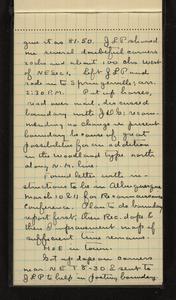 give it as 81.50. J.L.P. showed
me several doubtful corners
and about 100 chs. west
of NE Sec 1. Left J.L.P. and
rode in to Springerville; arr.
2:30 P.M. Put up horses,
read over mail, discussed
boundary with J.D.G.; recom-
mending no change in present
boundary because of great
possibilities for an addition
in the woodland type north
along N.M. line.
Found letter with in-
structions to be in Albuquerque
March 10 & 11 for Reconnaissance
conference. Plan to do boundary
report first, then Rec. dope &
then Improvement map if
sufficient time remains.
H & E in town.
Got up dope on corners
near NE T 8-30 & sent to
J.L.P. to help in posting boundary.